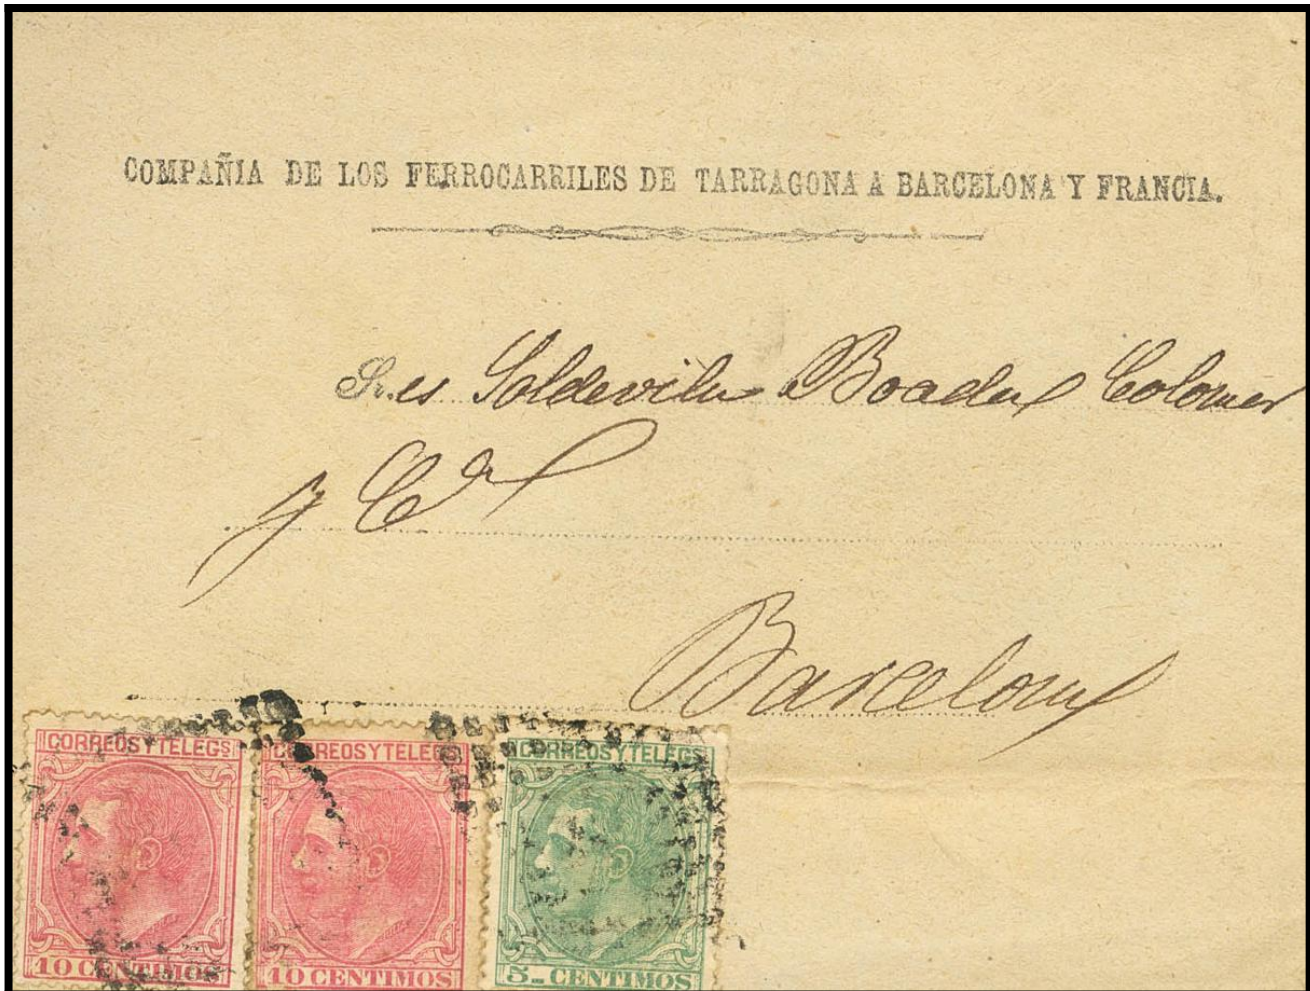 COMPAÑIA DE LOS FERROCARRILES DE TARRAGONA A BARCELONA Y FRANCIA.
Sr.es Soldevila Boada Colomer
y Cª
Barcelona
CORREOS Y TELEGS CORREOS Y TELEGS CORREOS Y TELEGS
10 CENTIMOS 10 CENTIMOS 5_ CENTIMOS